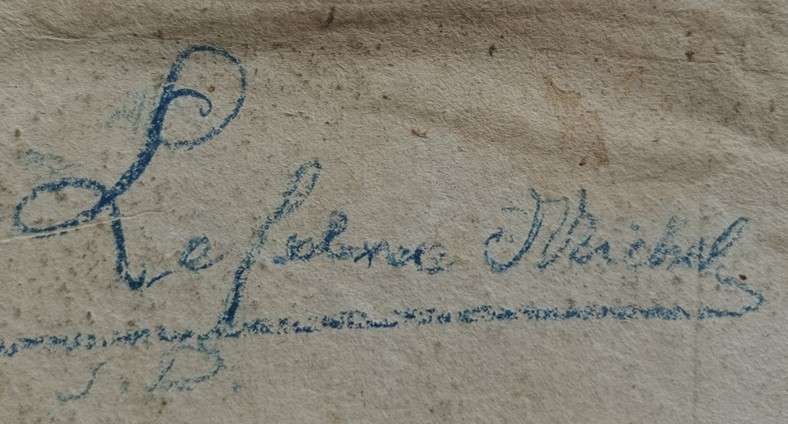 Lefebvre Michel